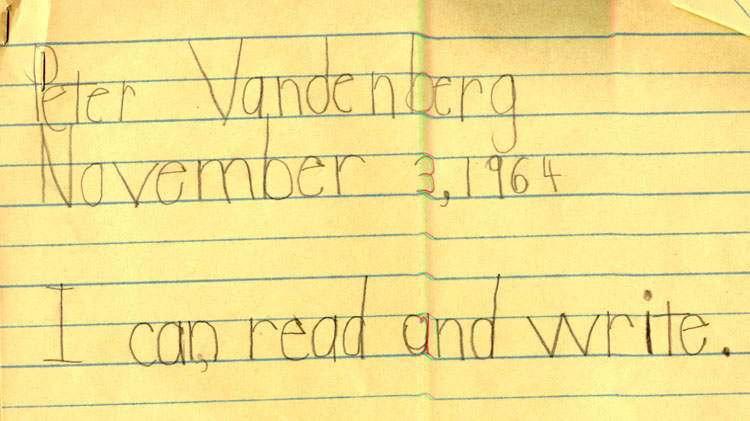 Peter Vandenberg
November 3, 1964
I can read and write.